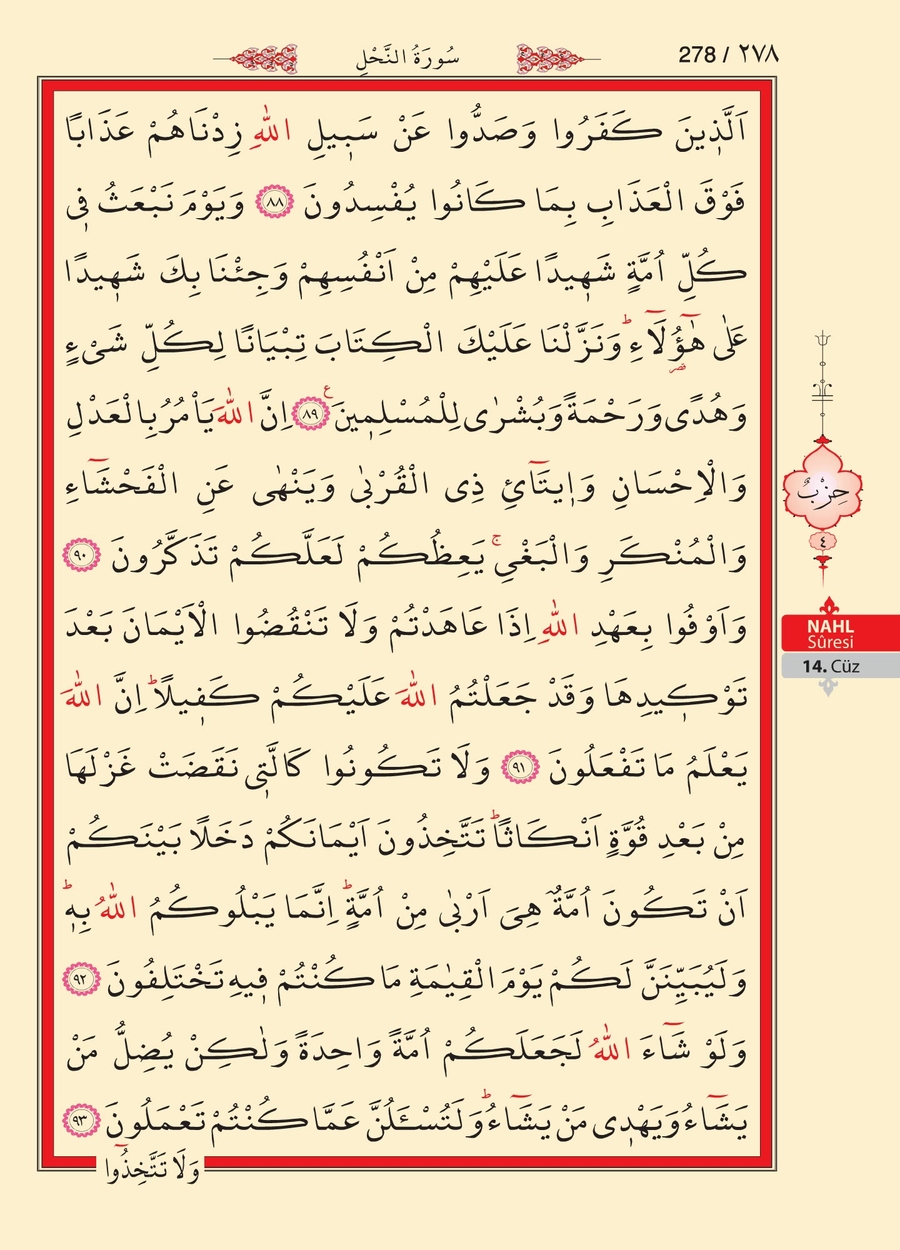 سُورَةُ النَّحْلِ
278 / ٢٧٨
اَلَّذ۪ينَ كَفَرُوا وَصَدُّوا عَنْ سَب۪يلِ اللّٰهِ زِدْنَاهُمْ عَذَابًا
فَوْقَ الْعَذَابِ بِمَا كَانُوا يُفْسِدُونَ ﴿٨٨﴾ وَيَوْمَ نَبْعَثُ ف۪ي
كُلِّ اُمَّةٍ شَه۪يدًا عَلَيْهِمْ مِنْ اَنْفُسِهِمْ وَجِئْنَا بِكَ شَه۪يدًا
عَلٰى هٰٓؤُ۬لَٓاءِۜ وَنَزَّلْنَا عَلَيْكَ الْكِتَابَ تِبْيَانًا لِكُلِّ شَىْءٍ
وَهُدًى وَرَحْمَةً وَبُشْرٰى لِلْمُسْلِم۪ينَ۟ ﴿٨٩﴾ اِنَّ اللّٰهَ يَأْمُرُ بِالْعَدْلِ
وَالْاِحْسَانِ وَا۪يتَٓائِ ذِى الْقُرْبٰى وَيَنْهٰى عَنِ الْفَحْشَٓاءِ
وَالْمُنْكَرِ وَالْبَغْيِۚ يَعِظُكُمْ لَعَلَّكُمْ تَذَكَّرُونَ ﴿٩٠﴾
وَاَوْفُوا بِعَهْدِ اللّٰهِ اِذَا عَاهَدْتُمْ وَلَا تَنْقُضُوا الْاَيْمَانَ بَعْدَ
تَوْك۪يدِهَا وَقَدْ جَعَلْتُمُ اللّٰهَ عَلَيْكُمْ كَف۪يلًاۜ اِنَّ اللّٰهَ
يَعْلَمُ مَا تَفْعَلُونَ ﴿٩١﴾ وَلَا تَكُونُوا كَالَّت۪ي نَقَضَتْ غَزْلَهَا
مِنْ بَعْدِ قُوَّةٍ اَنْكَاثًاۜ تَتَّخِذُونَ اَيْمَانَكُمْ دَخَلًا بَيْنَكُمْ
اَنْ تَكُونَ اُمَّةٌ هِىَ اَرْبٰى مِنْ اُمَّةٍۜ اِنَّمَا يَبْلُوكُمُ اللّٰهُ بِه۪ۜ
وَلَيُبَيِّنَنَّ لَكُمْ يَوْمَ الْقِيٰمَةِ مَا كُنْتُمْ ف۪يهِ تَخْتَلِفُونَ ﴿٩٢﴾
وَلَوْ شَٓاءَ اللّٰهُ لَجَعَلَكُمْ اُمَّةً وَاحِدَةً وَلٰكِنْ يُضِلُّ مَنْ
يَشَٓاءُ وَيَهْد۪ى مَنْ يَشَٓاءُۜ وَلَتُسْـَٔلُنَّ عَمَّا كُنْتُمْ تَعْمَلُونَ ﴿٩٣﴾
وَلَا تَتَّخِذُٓوا
حِزْبٌ
٤
NAHL
Sûresi
14. Cüz